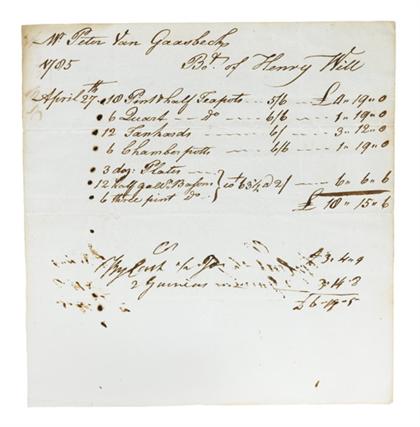 Mr. Peter Van Gaasbeck
1785 Bot. of Henry Will
April 27th 18 Pint & half Teapots 5/6 £4"19"0
6 Quart do 6/6 1"19"0
12 Tankards 6/ 3"12"0
6 Chamberpots 6/6 1"19"0
3 doz: Plates
12 half gall: Basons } wt 63¼ @ 2/ 6"6"6
6 three pint do
£18"15"6
By Cash £3"4"9
2 Guineas 3"14"8
£6"19"5